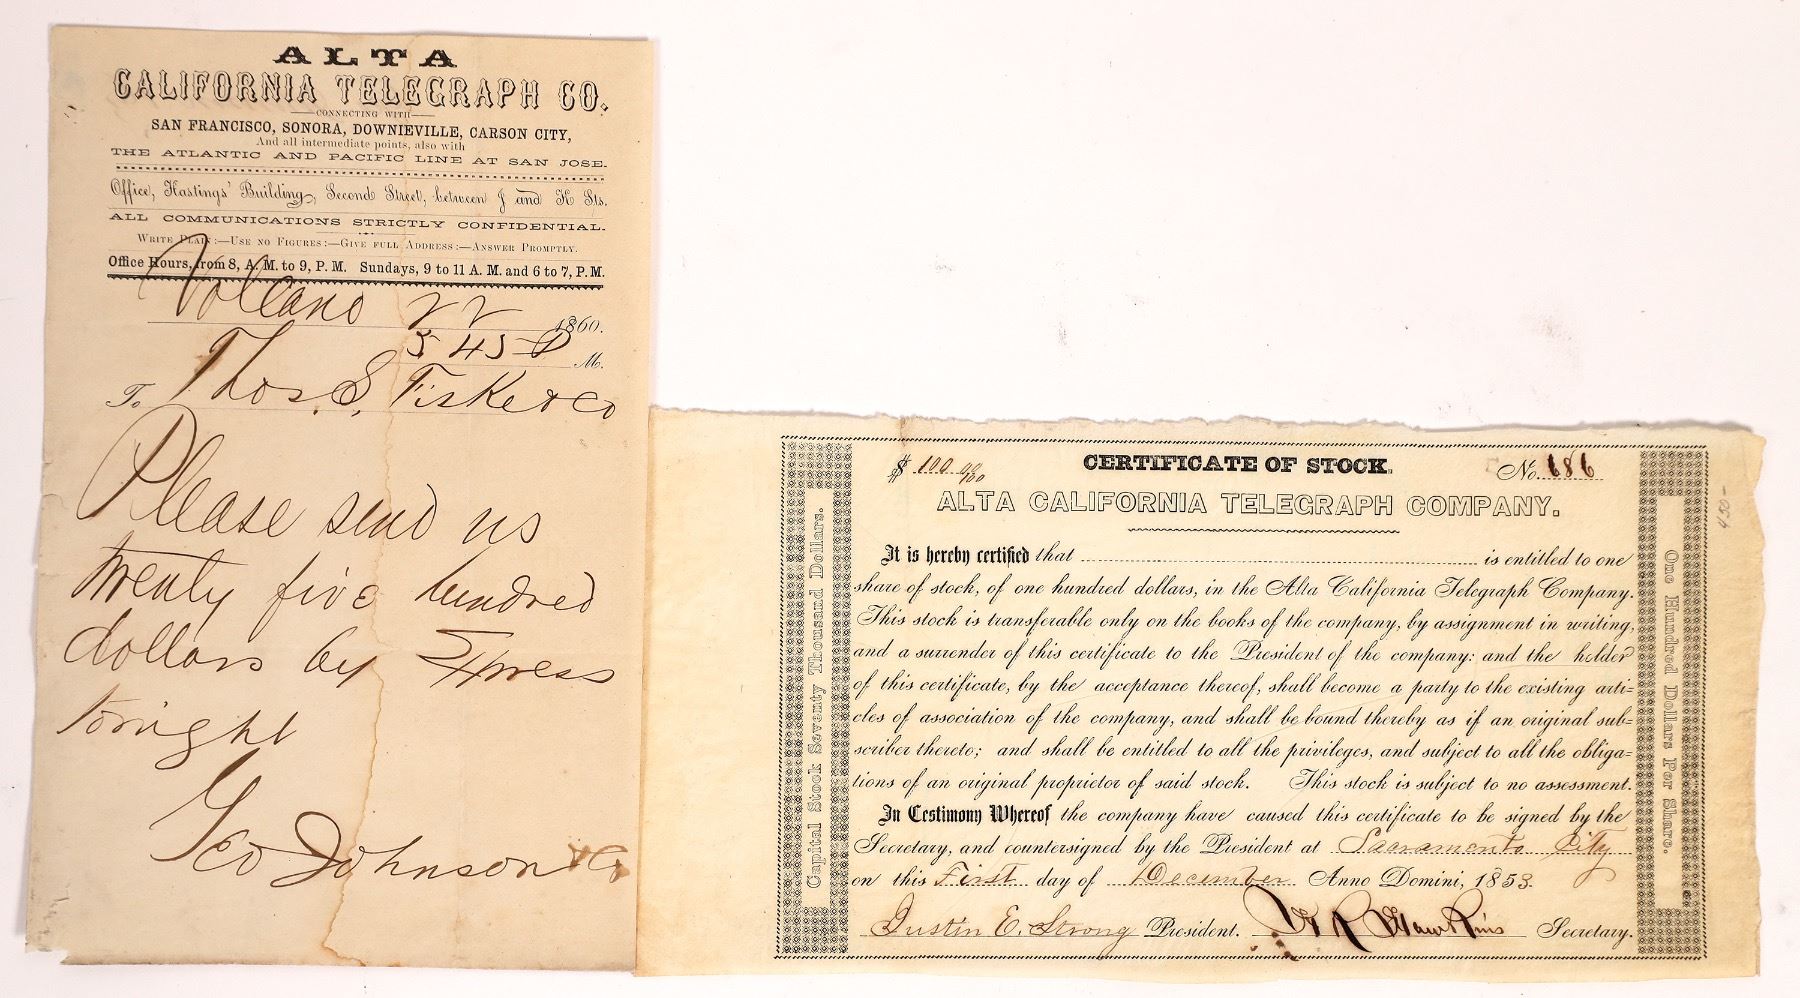 ALTA
CALIFORNIA TELEGRAPH CO.
CONNECTING WITH
SAN FRANCISCO, SONORA, DOWNIEVILLE, CARSON CITY,
And all intermediate points, also with
THE ATLANTIC AND PACIFIC LINE AT SAN JOSE.
Office, Hastings' Building, Second Street, between J and K Sts.
ALL COMMUNICATIONS STRICTLY CONFIDENTIAL.
WRITE PLAIN:—USE NO FIGURES:—GIVE FULL ADDRESS:—ANSWER PROMPTLY.
Office Hours, from 8, A. M. to 9, P. M. Sundays, 9 to 11 A. M. and 6 to 7, P. M.
Volcano 22 1860.
5 45 P M.
To Thos S, Fiske & Co
Please send us
twenty five hundred
dollars by Express
tonight
Geo Johnson & Co
$ 100 00/100 CERTIFICATE OF STOCK. No. 686
ALTA CALIFORNIA TELEGRAPH COMPANY.
It is hereby certified that is entitled to one
share of stock, of one hundred dollars, in the Alta California Telegraph Company.
This stock is transferable only on the books of the company, by assignment in writing,
and a surrender of this certificate to the President of the company: and the holder
of this certificate, by the acceptance thereof, shall become a party to the existing arti-
cles of association of the company, and shall be bound thereby as if an original sub-
scriber thereto; and shall be entitled to all the privileges, and subject to all the obliga-
tions of an original proprietor of said stock. This stock is subject to no assessment.
In Testimony Whereof the company have caused this certificate to be signed by the
Secretary, and countersigned by the President at Sacramento City
on this First day of December Anno Domini, 1853.
Justin E. Strong President. W R Hawkins Secretary.
Capital Stock Seventy Thousand Dollars.
One Hundred Dollars Per Share.
450-